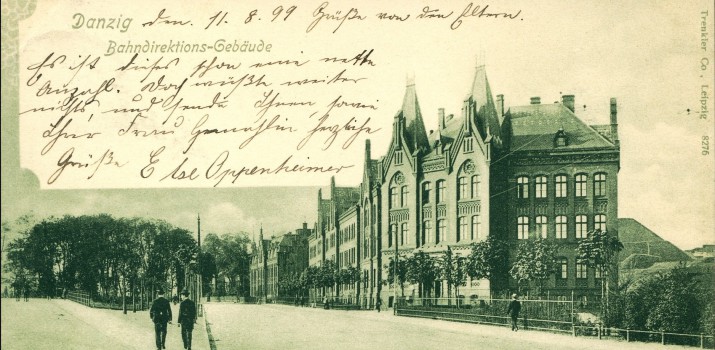 Danzig den. 11. 8. 99 Grüße von den Eltern.
Bahndirektions-Gebäude
Es ist dieses schon eine nette
Anzahl. Doch wüßte weiter
nichts, und sende Ihnen, sowie
Ihrer Frau Gemahlin herzliche
Grüße E Oppenheimer
Trenkler Co., Leipzig 8276